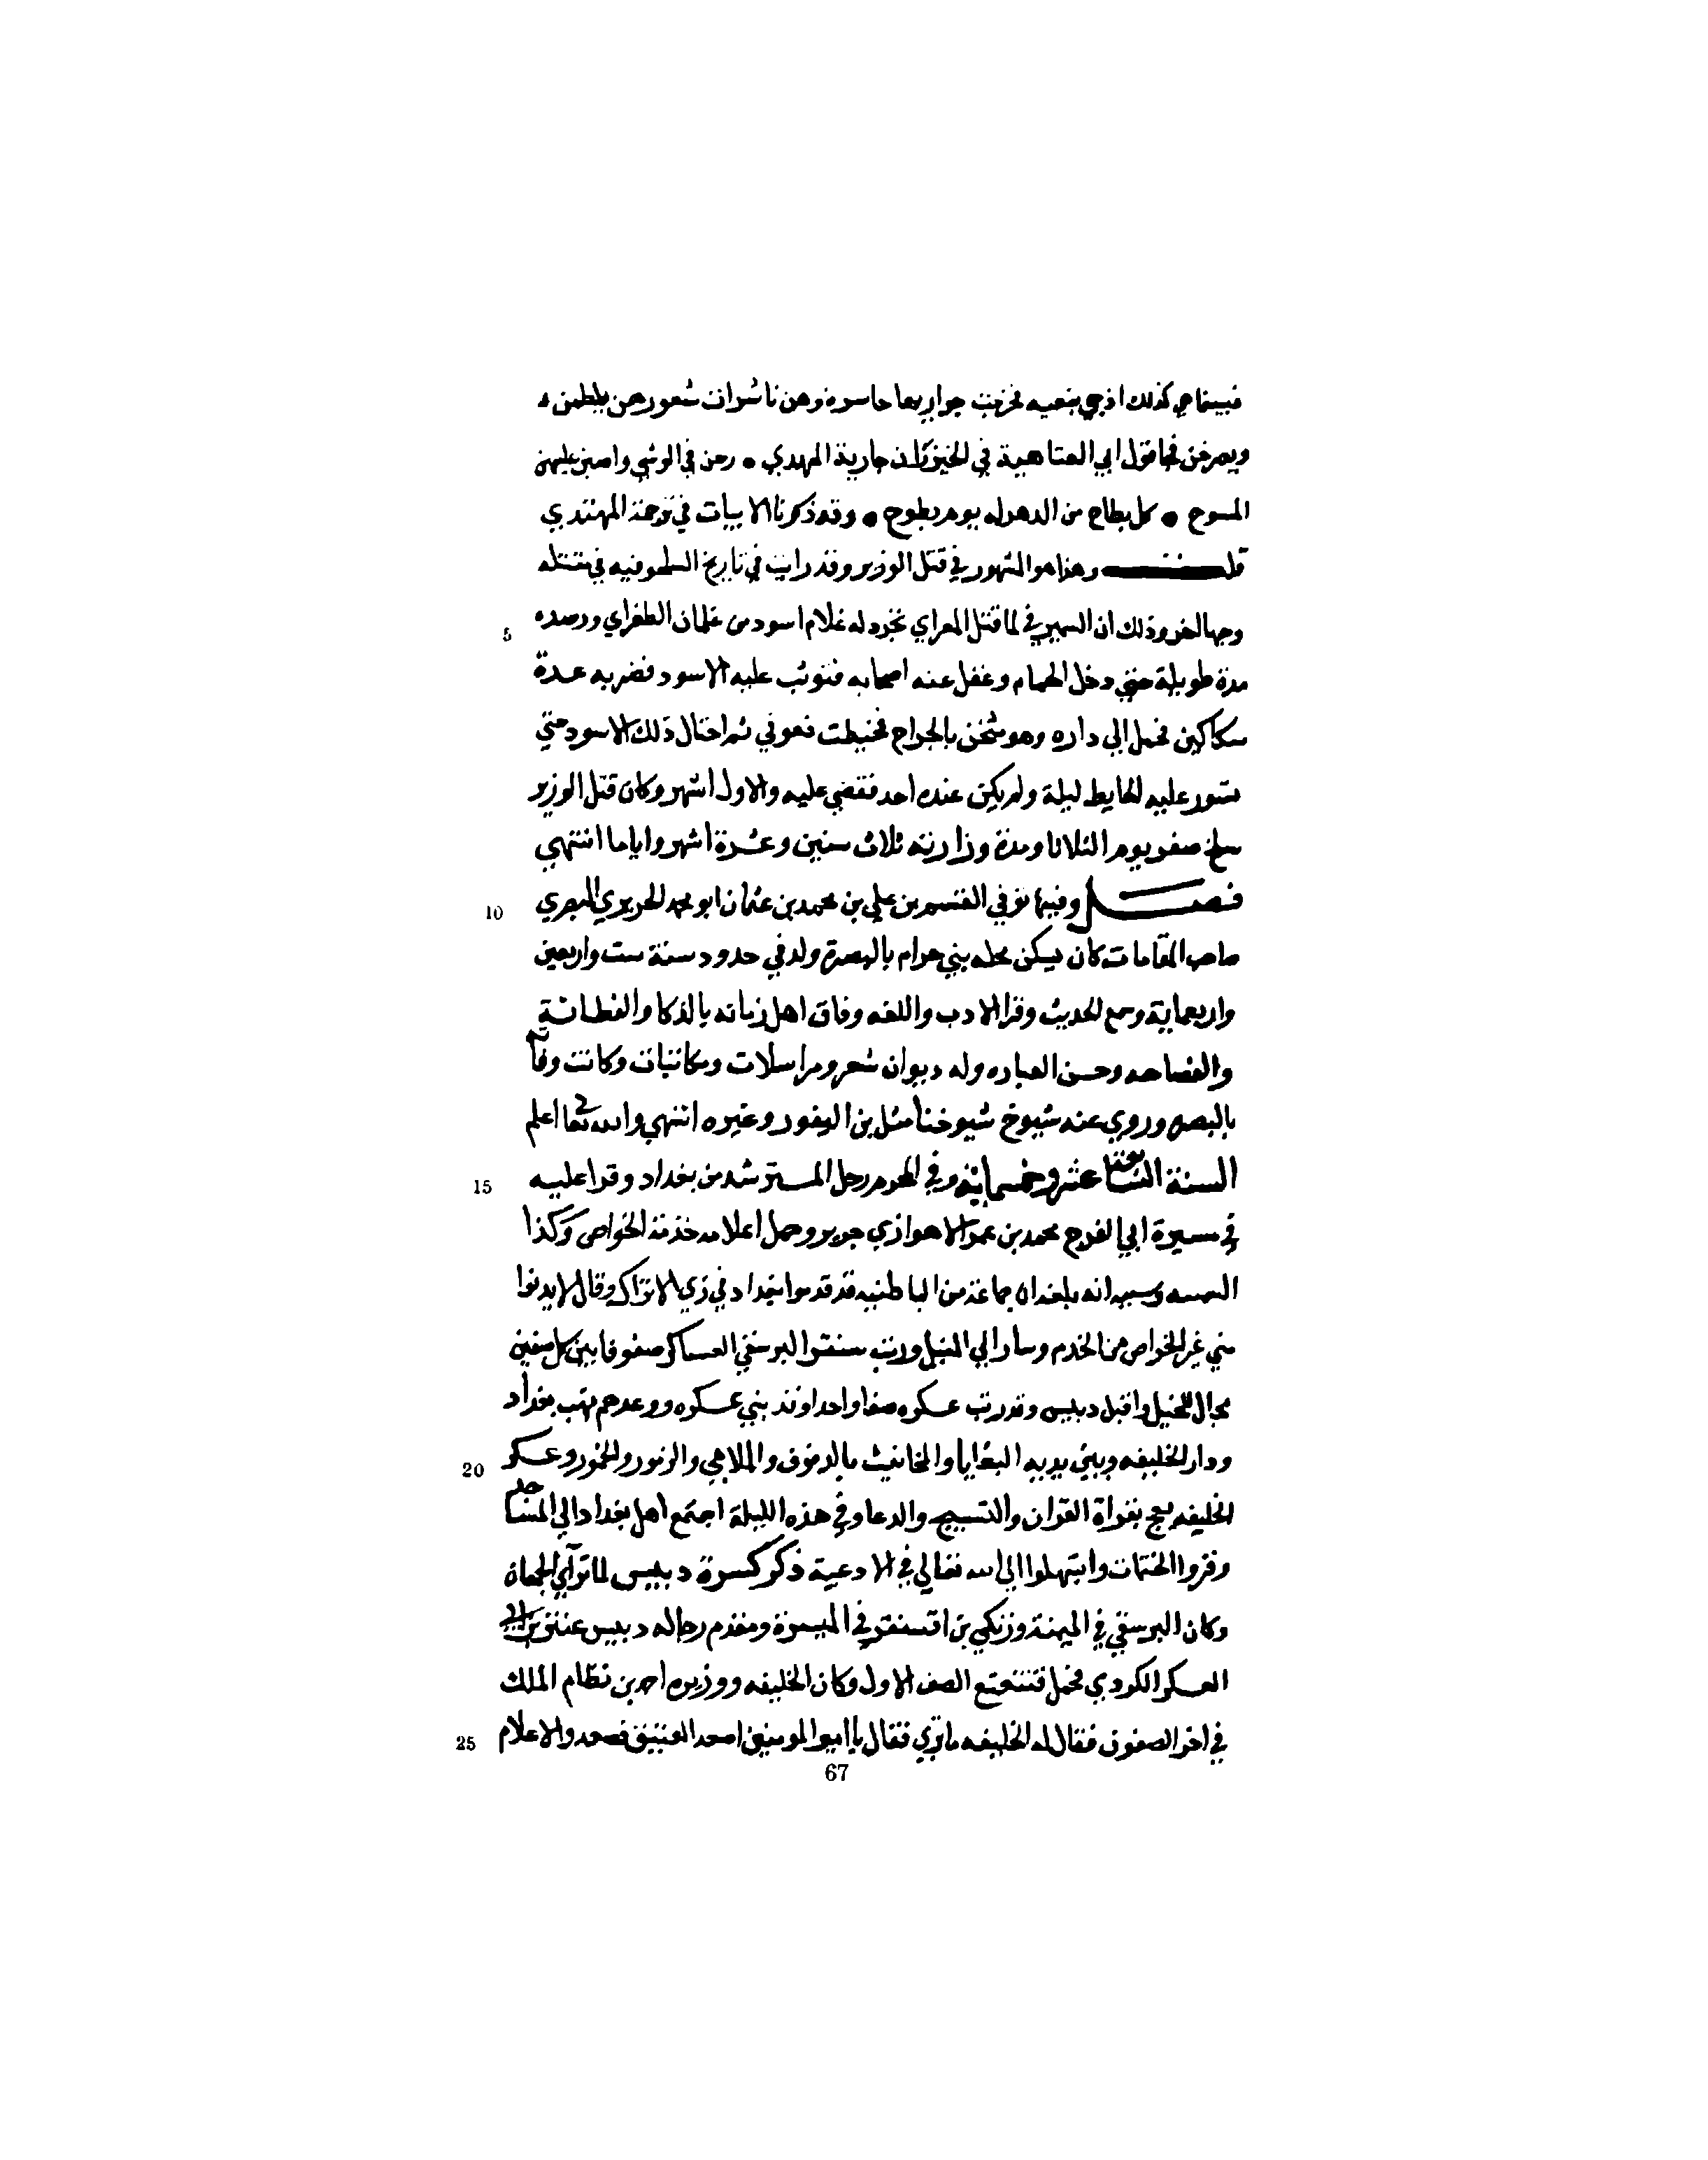 فبينما هي كذلك اذ جي بنعيه فخرجت جواريها حاسرة وهن ناشرات شعورهن يلطمن
ويصرخن فجا قول ابي العتاهية في الخيزران جارية المهدي • رحن في الوشي واصبن عليهن
المسوح • كل بطاح من الدهر له يوم بطوح • وقد ذكرنا الابيات في ترجمة المهتدي
قلت وهذا هو المشهور في قتل الوزير وقد رايت في تاريخ السلجوقيه في مقتله
5 وجها اخر وذلك ان السميرمي لما قتل الطغراي تجرد له غلام اسود من غلمان الطغراي ورصده
مدة طويلة حتي دخل الحمام وغفل عنه اصحابه فتوثب عليه الاسود فضربه عدة
سكاكين فحمل الي داره وهو مثخن بالجراح فخيطت فعوفي ثم احتال ذلك الاسود حتي
تسور عليه الحايط ليلة ولم يكن عنده احد فقضي عليه والاول اشهر وكان قتل الوزير
سلخ صفر يوم الثلاثا ومدة وزارته ثلاث سنين وعشرة اشهر واياما انتهي
10 فصل وفيها توفي القسم بن علي بن محمد بن عثمان ابو محمد الحريري البصري
صاحب المقامات كان يسكن محله بني حرام بالبصرة ولد في حدود سنة ست واربعين
واربعماية وسمع الحديث وقرا الادب واللغه وفاق اهل زمانه بالذكا والفطانة
والفصاحه وحسن العباره وله ديوان شعر ومراسلات ومكاتبات وكانت وفاته
بالبصره وروي عنه شيوخ شيوخنا مثل بن النقور وغيره انتهي والله تعا اعلم
15 السنة السابعة عشر وخمسماية وفي المحرم رحل المسترشد من بغداد وقرا عليه
في مسيرة ابي الفرج محمد بن عمر الاهوازي جزء وحمل اعلامه خدمة الخواص وكذا
وسببه انه بلغه ان جماعة من الباطنيه قد قدموا بغداد في زي الاتراك وقال لا يدنوا
مني غير الخواص من الخدم وسار الي النيل ورتب سنقر البرسقي العساكر صفوفا بين كل صفين
مجال للخيل واقبل دبيس وقد رتب عسكره صفا واحدا وعدهم نهب بغداد
20 ودار الخليفه وبين يديه البغايا والمخانيث بالدفوف والملاهي والزمور والخمور وعسكر
الخليفه يعج بقراة القران والتسبيح والدعا وفي هذه الليلة اجتمع اهل بغداد الي المساجد
وقروا الختمات وابتهلوا الي الله تعالي في الادعية ذكر كسرة دبيس لما ترآي الجمعان
وكان البرسقي في الميمنة وزنكي بن اقسنقر في الميسرة ومقدم رجاله دبيس عنتر بن ابي
العسكر الكردي فحمل فتتعتع الصف الاول وكان الخليفه ووزيره احمد بن نظام الملك
25 في اخر الصفوف فقال له الخليفه ما تري فقال يا امير المومنين اصعد العتيق فصعد والاعلام
67